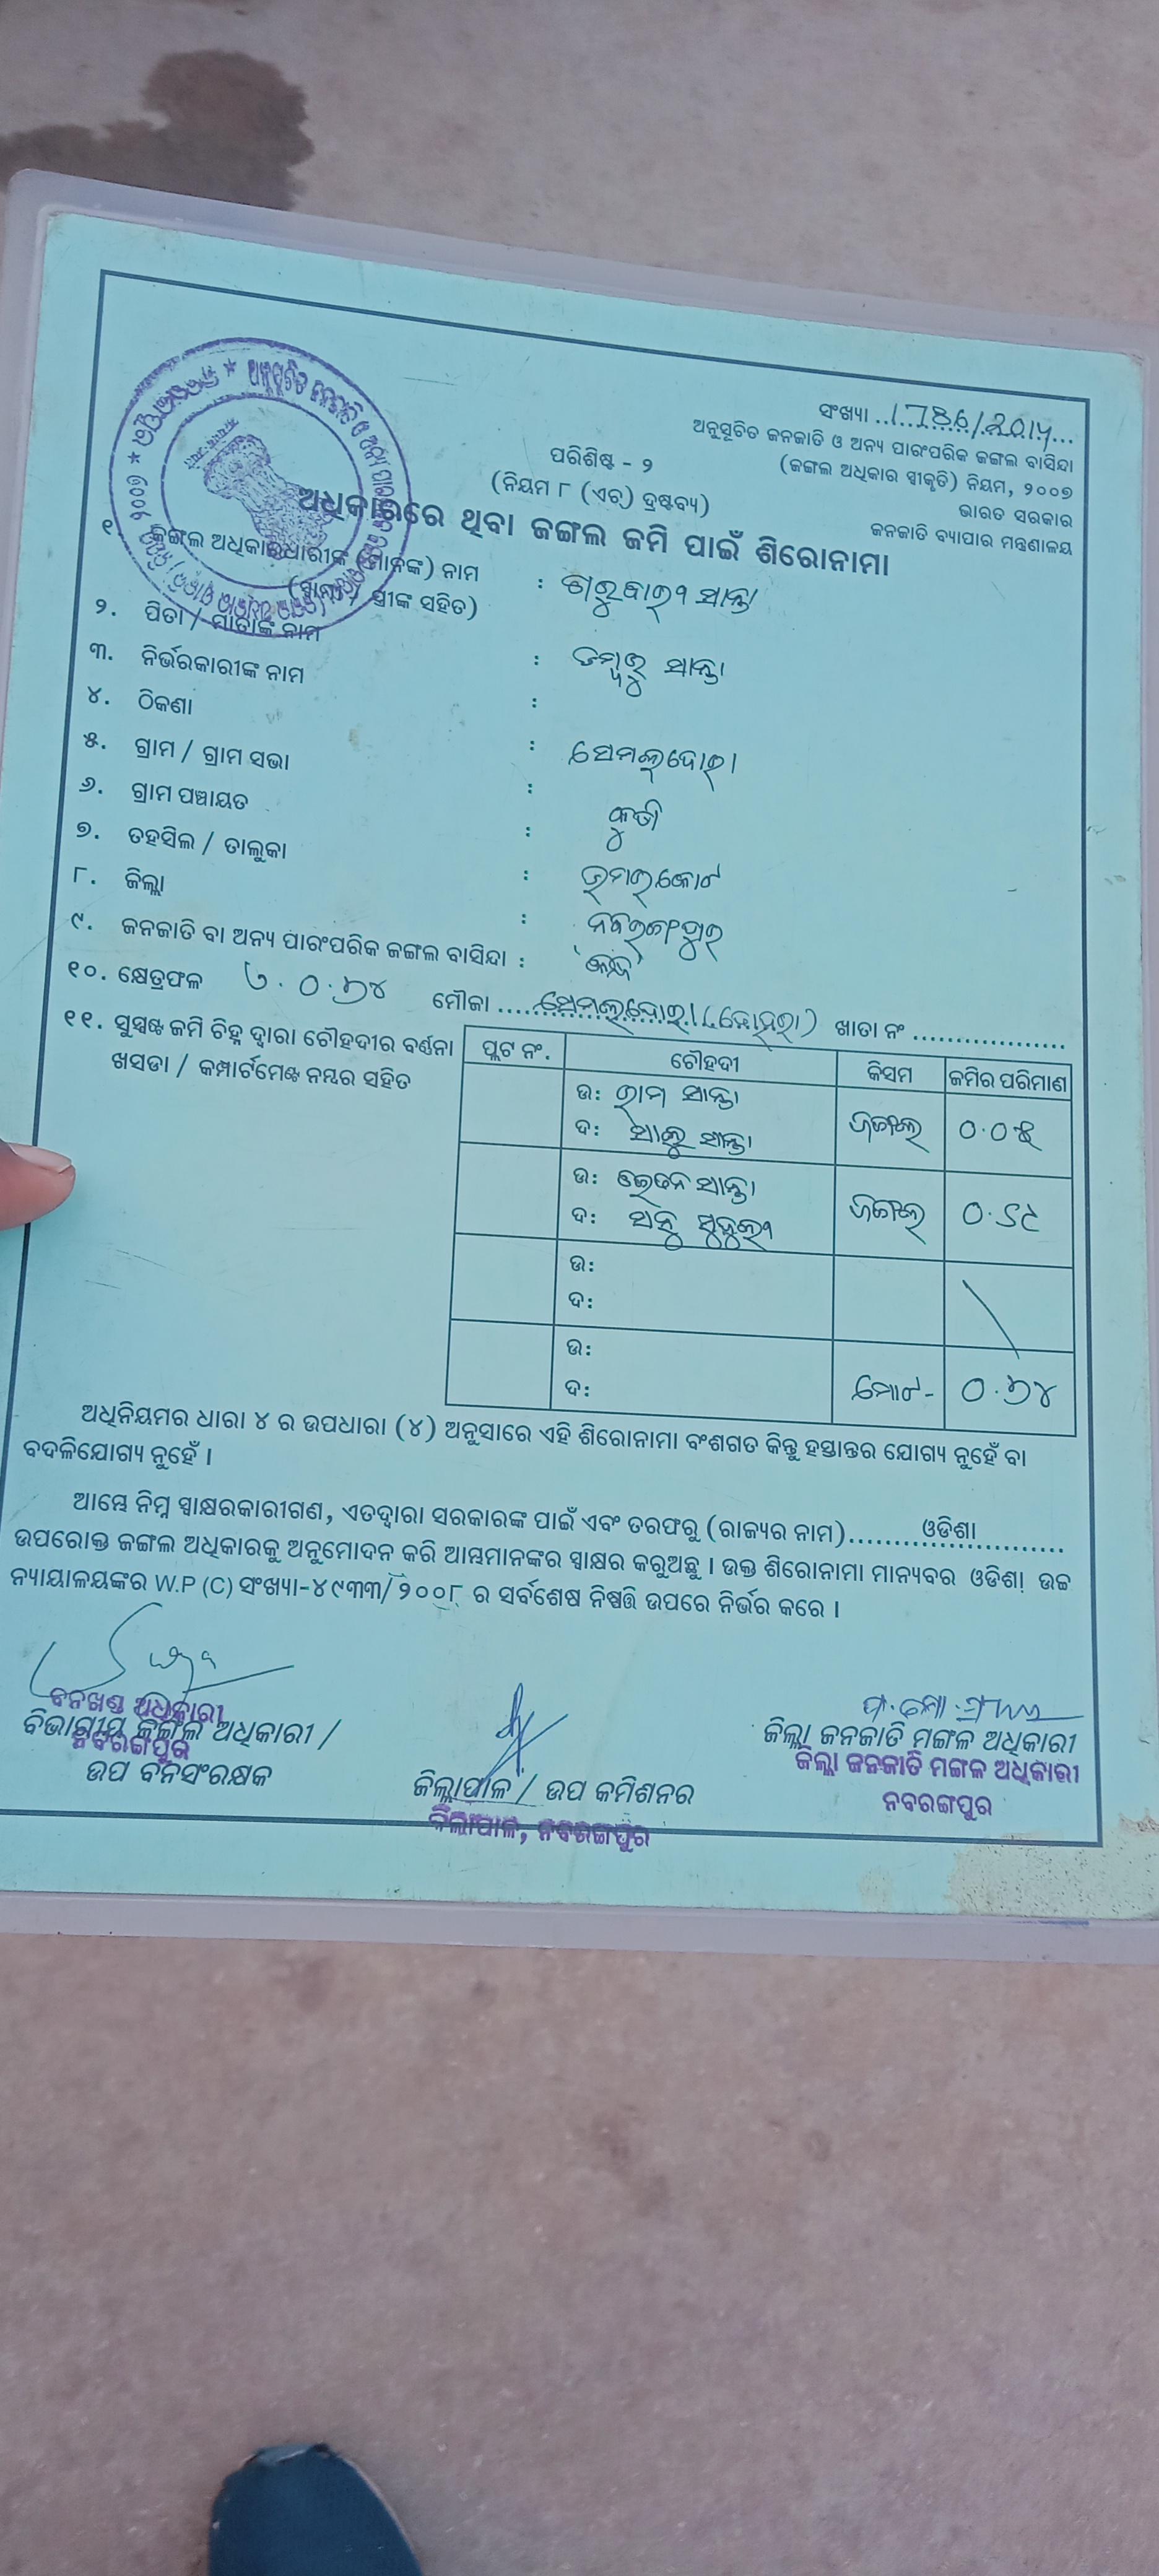 ସଂଖ୍ୟା ..1786/2014...
ଅନୁସୂଚିତ ଜନଜାତି ଓ ଅନ୍ୟ ପାରଂପରିକ ଜଙ୍ଗଲ ବାସିନ୍ଦା
(ଜଙ୍ଗଲ ଅଧିକାର ସ୍ୱୀକୃତି) ନିୟମ, ୨୦୦୭
ଭାରତ ସରକାର
ଜନଜାତି ବ୍ୟାପାର ମନ୍ତ୍ରଣାଳୟ
ପରିଶିଷ୍ଟ - ୨
(ନିୟମ ୮ (ଏଚ୍) ଦ୍ରଷ୍ଟବ୍ୟ)
ଅଧିକାରରେ ଥିବା ଜଙ୍ଗଲ ଜମି ପାଇଁ ଶିରୋନାମା
୧. ଜଙ୍ଗଲ ଅଧିକାରଧାରୀଙ୍କ (ମାନଙ୍କ) ନାମ : ଗୁରୁବାରୀ ସାନ୍ତା
(ସ୍ୱାମୀ / ସ୍ତ୍ରୀଙ୍କ ସହିତ)
୨. ପିତା / ମାତାଙ୍କ ନାମ : ଡମ୍ବରୁ ସାନ୍ତା
୩. ନିର୍ଭରକାରୀଙ୍କ ନାମ :
୪. ଠିକଣା : ସେମଲଦୋରା
୫. ଗ୍ରାମ / ଗ୍ରାମ ସଭା :
୬. ଗ୍ରାମ ପଞ୍ଚାୟତ : କୁର୍ତୀ
୭. ତହସିଲ / ତାଲୁକା : ଉମରକୋଟ
୮. ଜିଲ୍ଲା : ନବରଙ୍ଗପୁର
୯. ଜନଜାତି ବା ଅନ୍ୟ ପାରଂପରିକ ଜଙ୍ଗଲ ବାସିନ୍ଦା :
୧୦. କ୍ଷେତ୍ରଫଳ ୦.୬୪ ମୌଜା ... ସେମଲଦୋରା ଖାତା ନଂ ..................
୧୧. ସୁସ୍ପଷ୍ଟ ଜମି ଚିହ୍ନ ଦ୍ୱାରା ଚୌହଦୀର ବର୍ଣ୍ଣନା
ଖସଡା / କମ୍ପାର୍ଟମେଣ୍ଟ ନମ୍ବର ସହିତ
ପ୍ଲଟ ନଂ. ଚୌହଦୀ କିସମ ଜମିର ପରିମାଣ
ଉ: ରାମ ସାନ୍ତା ଜଙ୍ଗଲ ୦.୦୫
ଦ: ସାଲୁ ସାନ୍ତା
ଉ: ସାନ୍ତା ଜଙ୍ଗଲ ୦.୫୯
ଦ:
ଉ:
ଦ:
ଉ:
ଦ: ମୋଟ- ୦.୬୪
ଅଧିନିୟମର ଧାରା ୪ ର ଉପଧାରା (୪) ଅନୁସାରେ ଏହି ଶିରୋନାମା ବଂଶଗତ କିନ୍ତୁ ହସ୍ତାନ୍ତର ଯୋଗ୍ୟ ନୁହେଁ ବା
ବଦଳିଯୋଗ୍ୟ ନୁହେଁ ।
ଆମ୍ଭେ ନିମ୍ନ ସ୍ୱାକ୍ଷରକାରୀଗଣ, ଏତଦ୍ୱାରା ସରକାରଙ୍କ ପାଇଁ ଏବଂ ତରଫରୁ (ରାଜ୍ୟର ନାମ)......ଓଡିଶା......
ଉପରୋକ୍ତ ଜଙ୍ଗଲ ଅଧିକାରକୁ ଅନୁମୋଦନ କରି ଆମ୍ଭମାନଙ୍କର ସ୍ୱାକ୍ଷର କରୁଅଛୁ । ଉକ୍ତ ଶିରୋନାମା ମାନ୍ୟବର ଓଡିଶା ଉଚ୍ଚ
ନ୍ୟାୟାଳୟଙ୍କର W.P (C) ସଂଖ୍ୟା-୪୯୩୩/୨୦୦୮ ର ସର୍ବଶେଷ ନିଷ୍ପତ୍ତି ଉପରେ ନିର୍ଭର କରେ ।
ବନଖଣ୍ଡ ଅଧିକାରୀ
ନବରଙ୍ଗପୁର
ବିଭାଗୀୟ ଜଙ୍ଗଲ ଅଧିକାରୀ /
ଉପ ବନସଂରକ୍ଷକ
ଜିଲ୍ଲାପାଳ / ଉପ କମିଶନର
ଜିଲ୍ଲାପାଳ, ନବରଙ୍ଗପୁର
ଜିଲ୍ଲା ଜନଜାତି ମଙ୍ଗଳ ଅଧିକାରୀ
ଜିଲ୍ଲା ଜନଜାତି ମଙ୍ଗଳ ଅଧିକାରୀ
ନବରଙ୍ଗପୁର